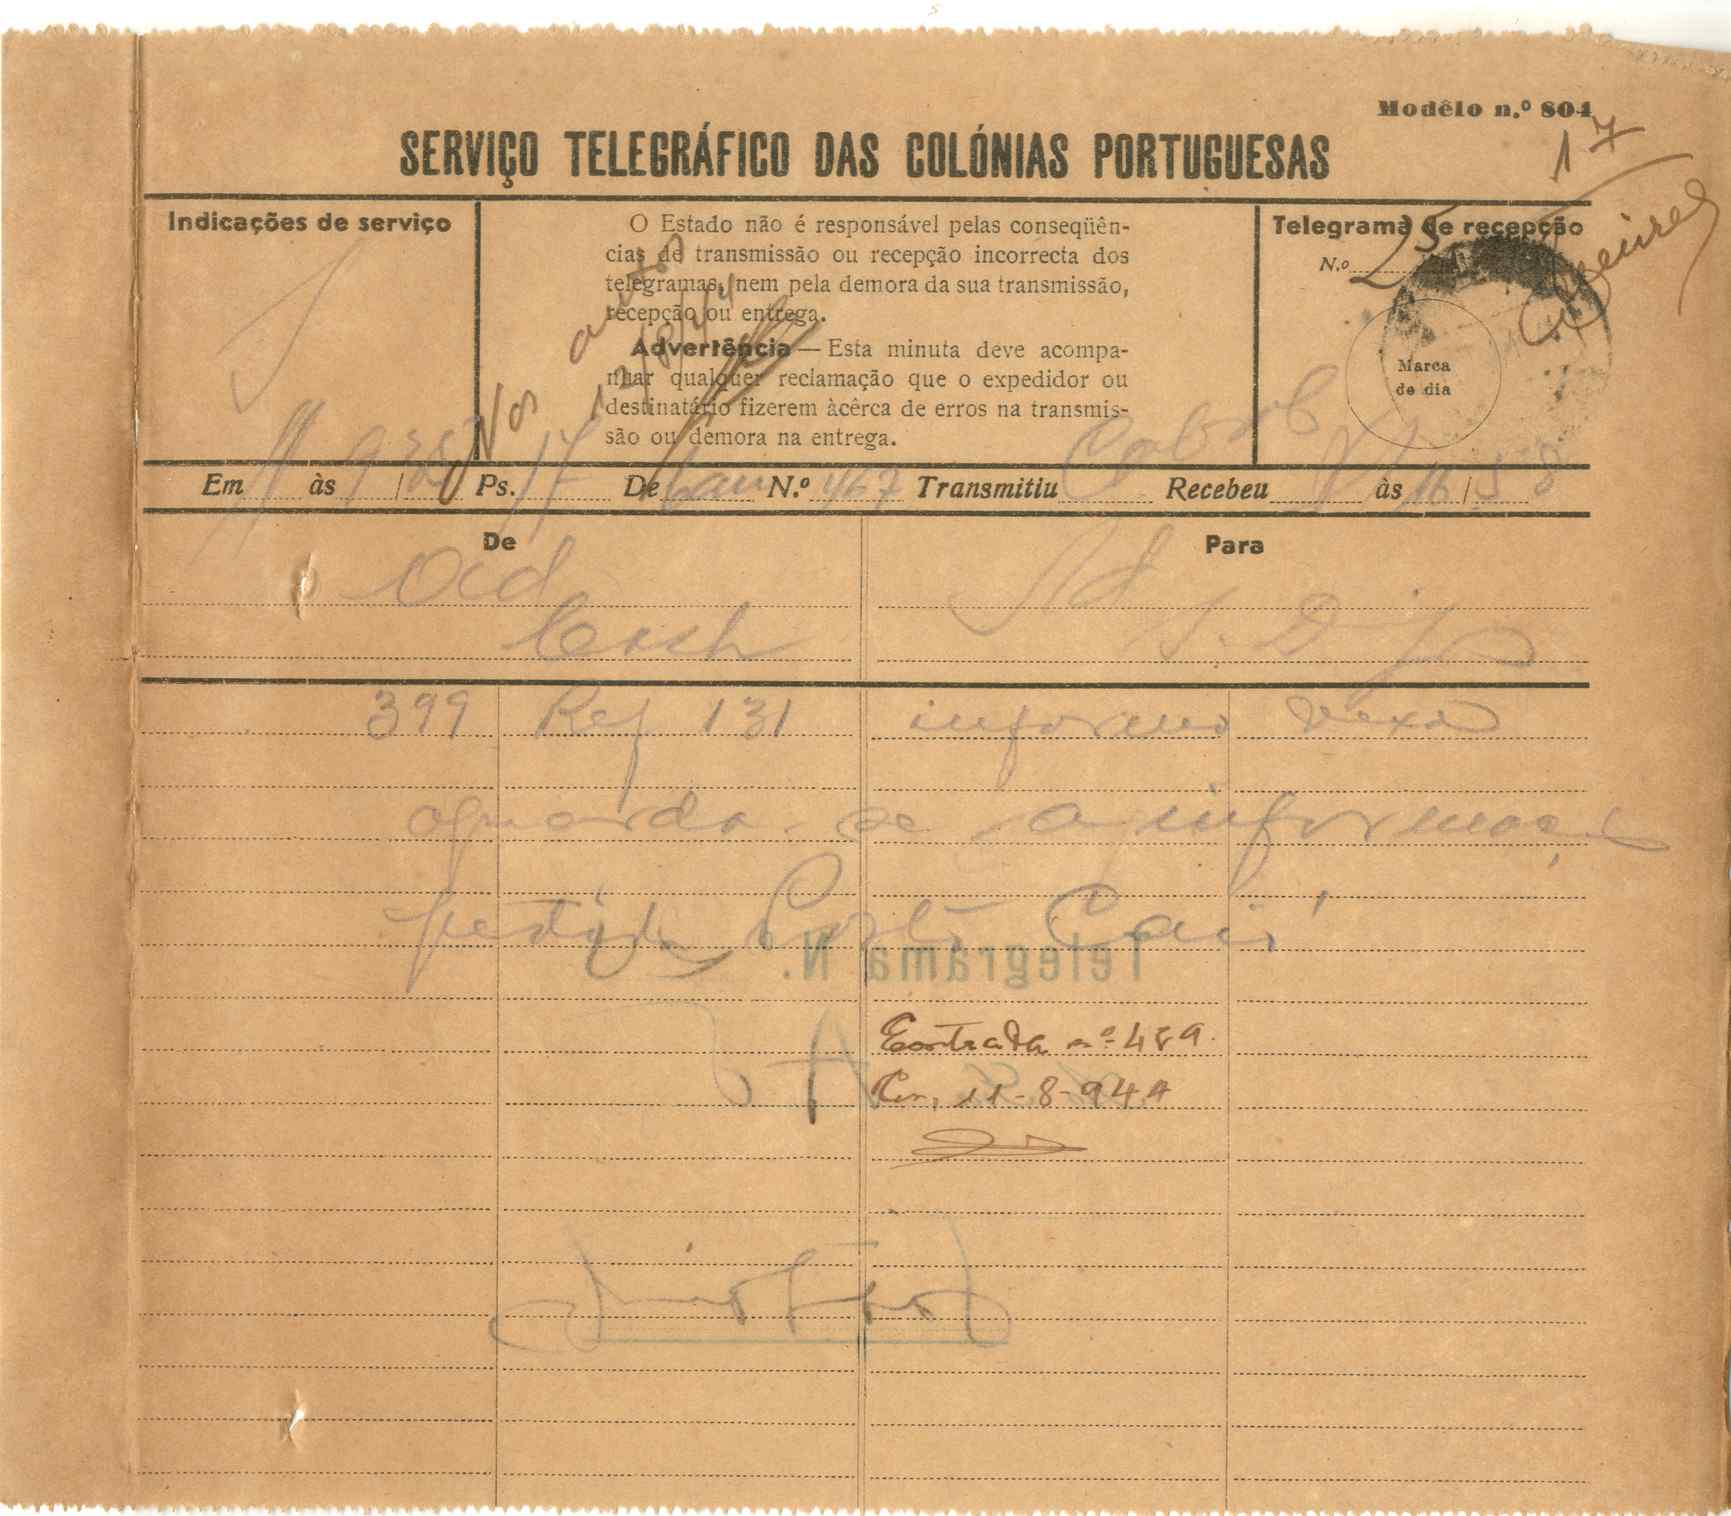 Modêlo n.º 804
17
SERVIÇO TELEGRÁFICO DAS COLÓNIAS PORTUGUESAS
Indicações de serviço
O Estado não é responsável pelas conseqüên-
cias de transmissão ou recepção incorrecta dos
telegramas, nem pela demora da sua transmissão,
recepção ou entrega.
Advertência — Esta minuta deve acompa-
nhar qualquer reclamação que o expedidor ou
destinatário fizerem àcêrca de erros na transmis-
são ou demora na entrega.
Telegrama de recepção
N.º 25
Marca
de dia
Aos autos
12/8/44
Em 11 às 9/35 Ps. 17 De N.º 467 Transmitiu Recebeu às 16/58
De
Para
399 Ref 131 informo Vexa
aguarda-se informação
pedida
Telegrama N.º
Entrada nº 489.
Em, 11-8-944